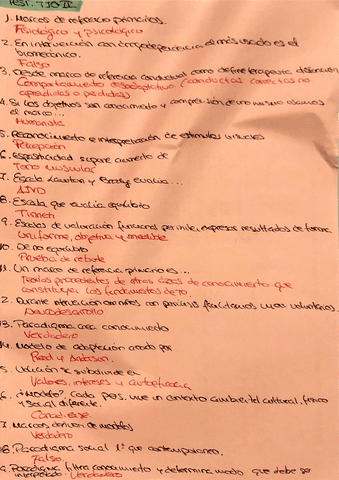 1. Marcos de referencia primarios.
Fisiológico y psicológico
2. En intervención con drogodependencia, el más usado es el
biomecánico.
Falso
3. Desde marco de referencia conductual como define terapeuta disfunción
Comportamiento desadaptativo (conductas correctas no
aprendidas o perdidas)
4. Si los objetivos son conocimiento y comprensión de uno mismo usamos
el marco...
Humanista
5. Reconocimiento e interpretación de estímulos visuales
Percepción
6. Espasticidad supone aumento de
Tono muscular
7. Escala Lawton y Brody evalúa...
AIVD
8. Escala que evalúa equilibrio
Tinneti
9. Escalas de valoración funcional permite expresar resultados de forma
Uniforme, objetiva y medible
10. De no equilibrio
Prueba de rebote
11. Un marco de referencia primario es...
Teorías procedentes de otras áreas de conocimiento que
constituyen los fundamentos de TO.
2. Durante intervención con niños con parálisis facilitamos mov. voluntarios.
Neurodesarrollo
13. Paradigma crea conocimiento
Verdadero
14. Modelo de adaptación creado por
Reed y Sanderson.
5. Volición se subdivide en
Valores, intereses y autoeficacia
6. ¿Modelo?, Cada pers. vive un contexto ambiental cultural, físico
y social diferente.
Canadiense.
7. Marcos derivan de modelos
Verdadero
18. Paradigma social 1º que contemporáneo.
Falso.
9. Paradigma filtra conocimiento y determina modo que debe ser
interpretado. Verdadero